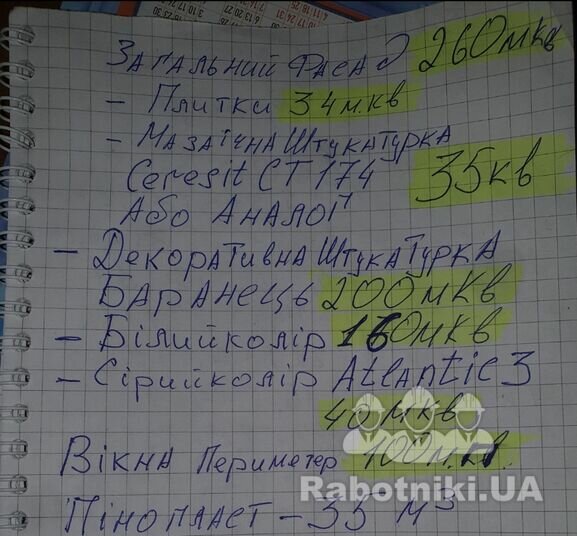 Загальний фасад 260мкв
- Плитки 34м.кв
- Мазаїчна штукатурка
Ceresit CT 174 35кв
Або Аналог
- Декоративна штукатурка
Баранець 200мкв
- Білийколір 160мкв
- Сірийколір Atlantic 3
40мкв
Вікна Периметер 100м.кв.
Пінопласт - 35 м³
Rabotniki.UA